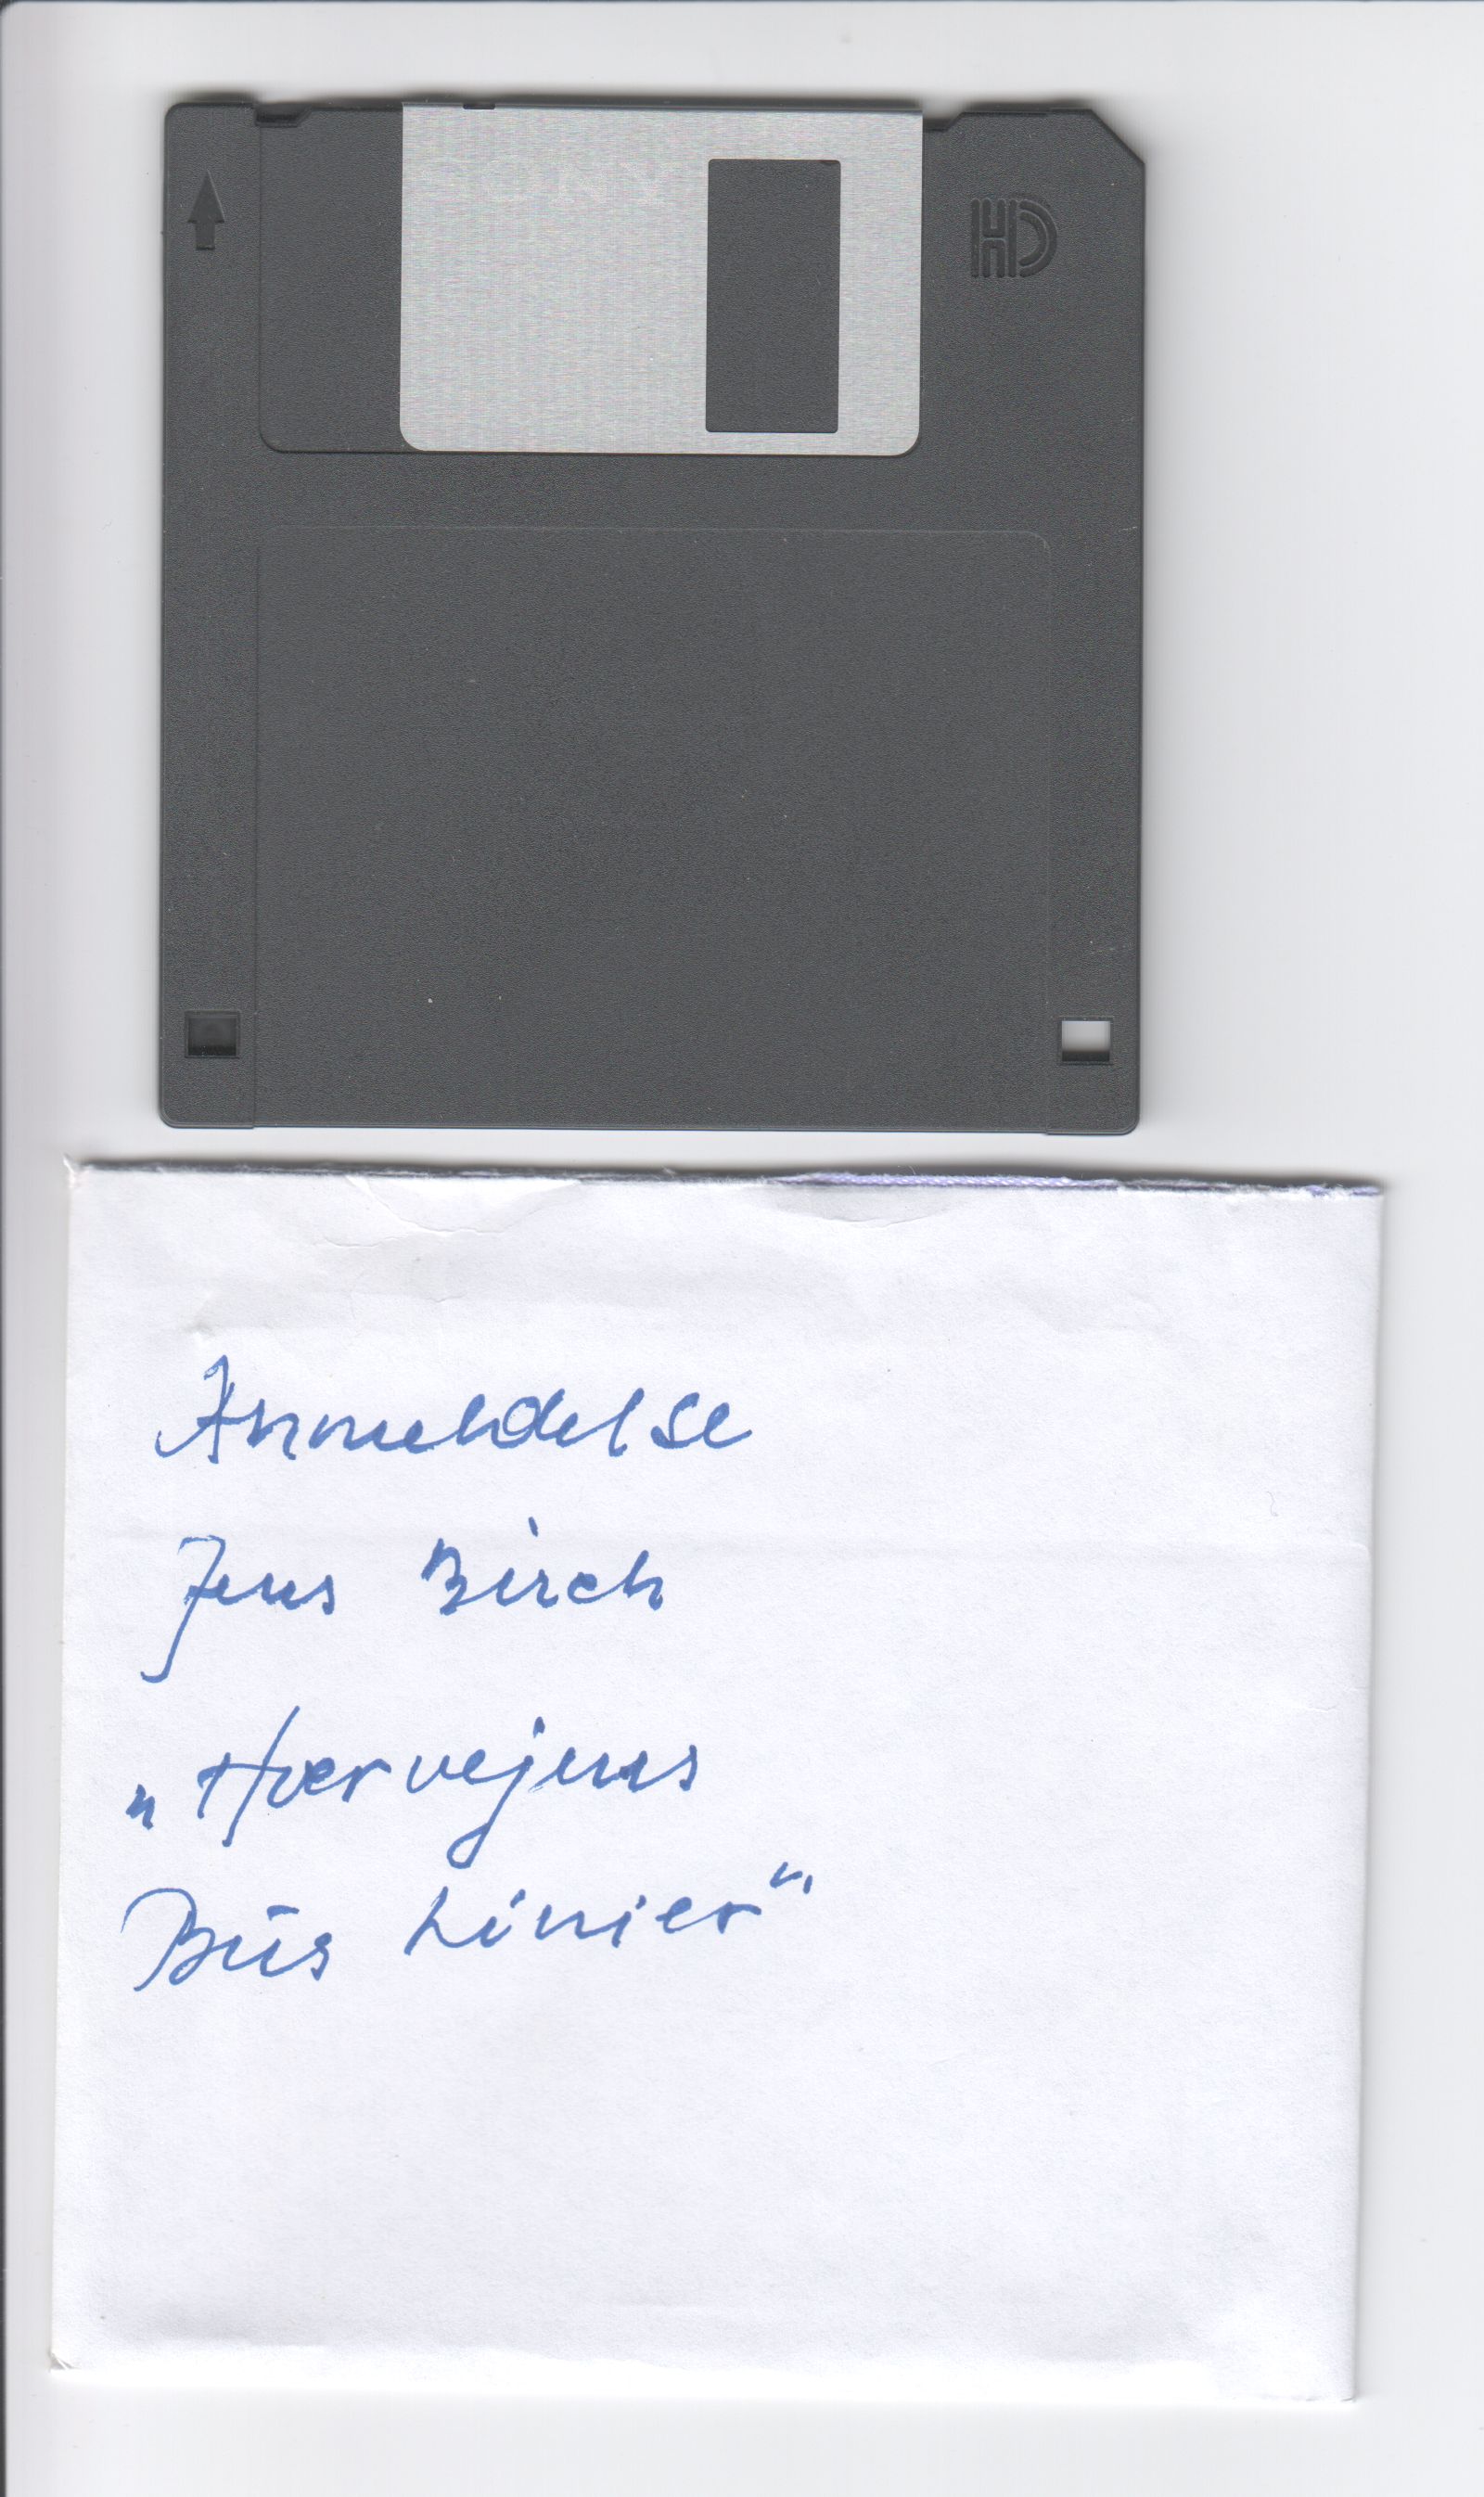 SONY
HD
Anmeldelse
Jens Birch
„Hærvejens
Bus Linier"